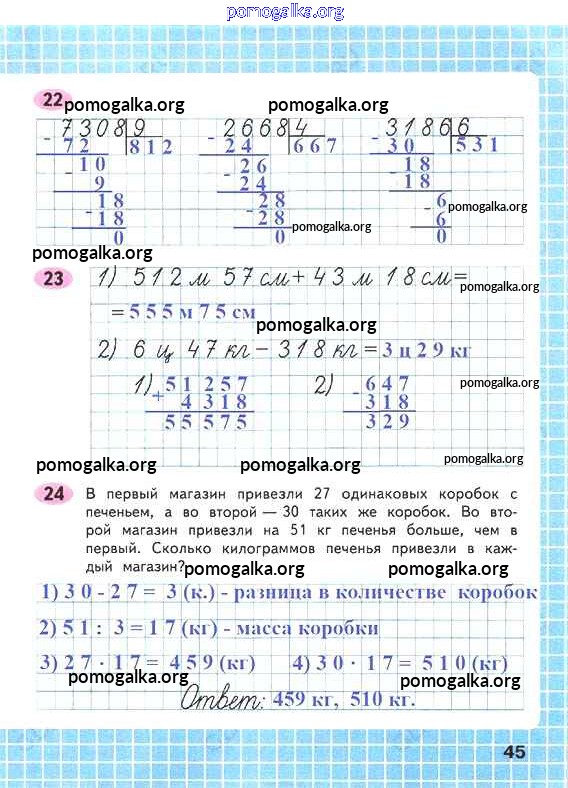 pomogalka.org
22
pomogalka.org pomogalka.org
7308 9 2668 4 3186 6
- 72 812 - 24 667 - 30 531
- 10 - 26 - 18
9 24 18
- 18 - 28 - 6
18 28 6
0 0 0
pomogalka.org
pomogalka.org
pomogalka.org
pomogalka.org
23 1) 512 м 57 см + 43 м 18 см =
pomogalka.org
= 555 м 75 см
pomogalka.org
2) 6 ц 47 кг – 318 кг = 3 ц 29 кг
1) + 51257 2) - 647
pomogalka.org
4318 318
55575 329
pomogalka.org
pomogalka.org pomogalka.org
24 В первый магазин привезли 27 одинаковых коробок с
печеньем, а во второй — 30 таких же коробок. Во вто-
рой магазин привезли на 51 кг печенья больше, чем в
первый. Сколько килограммов печенья привезли в каж-
дый магазин?
pomogalka.org pomogalka.org
1) 30 - 27 = 3 (к.) - разница в количестве коробок
2) 51 : 3 = 17 (кг) - масса коробки
3) 27 · 17 = 459 (кг) 4) 30 · 17 = 510 (кг)
pomogalka.org pomogalka.org
Ответ: 459 кг, 510 кг.
45